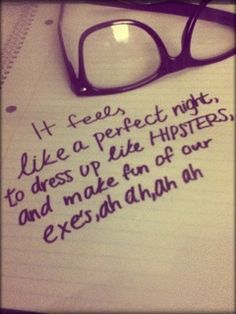 It feels
like a perfect night,
to dress up like HIPSTERS,
and make fun of our
exe's, ah ah, ah ah